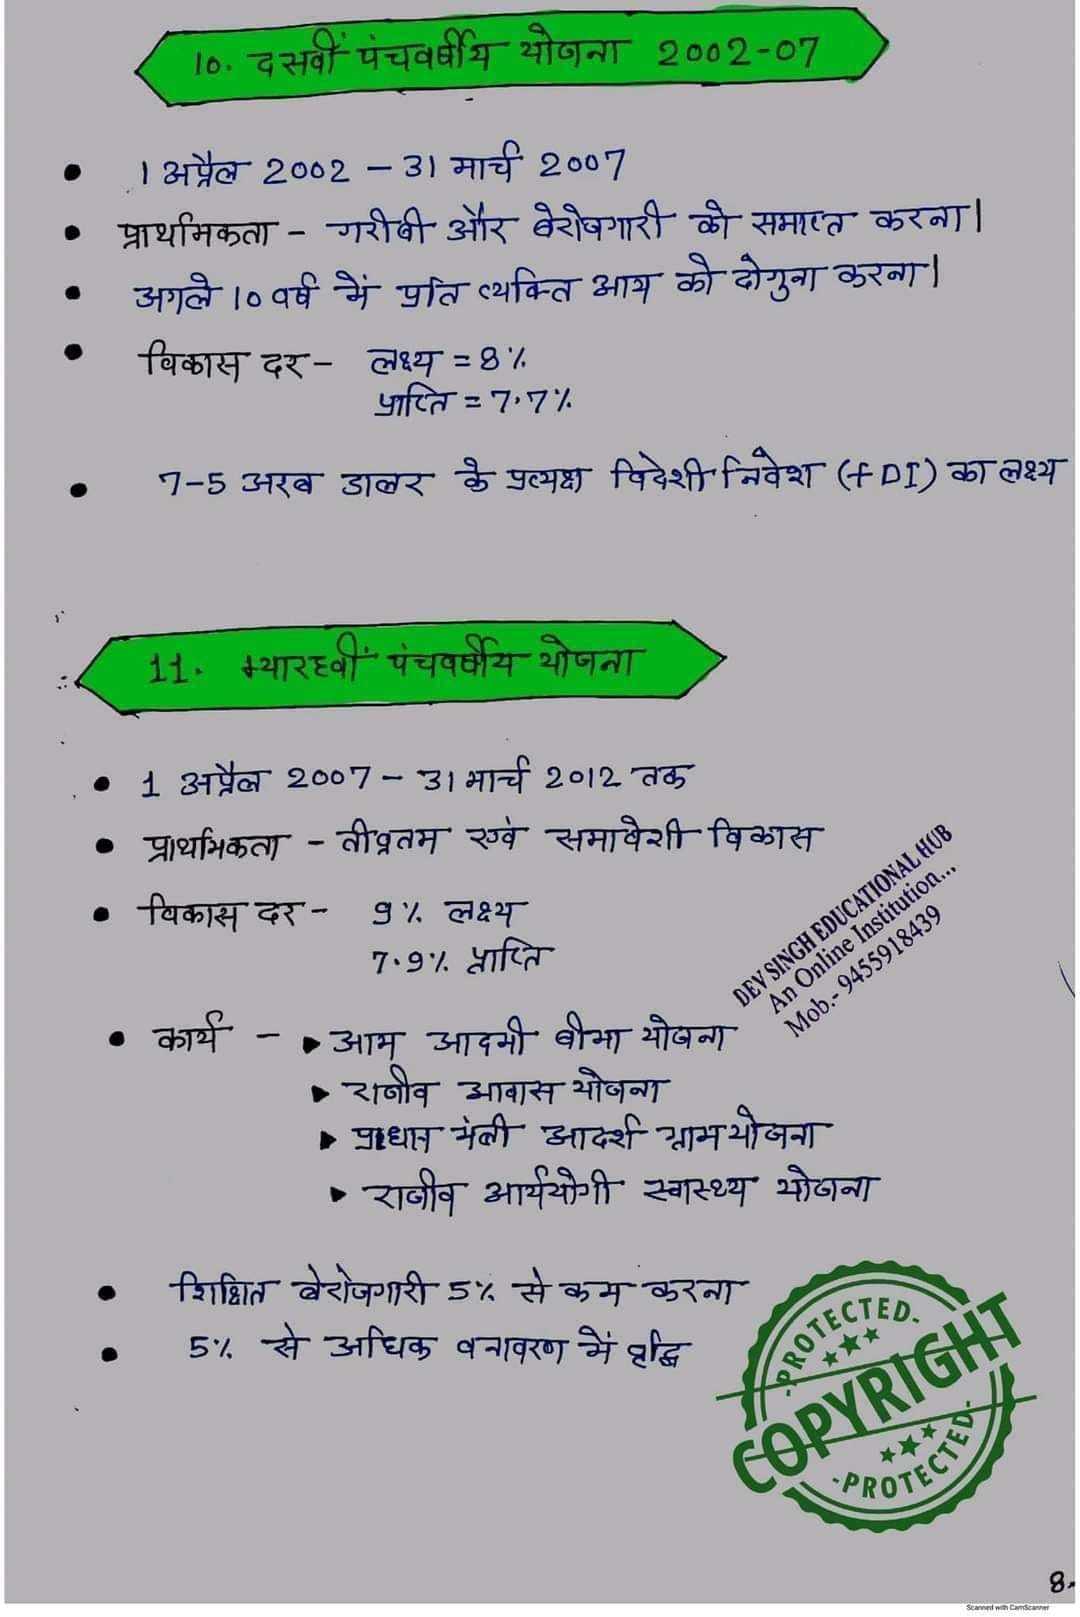 10. दसवीं पंचवर्षीय योजना 2002-07
• 1 अप्रैल 2002 - 31 मार्च 2007
• प्राथमिकता - गरीबी और बेरोजगारी को समाप्त करना।
• अगले 10 वर्ष में प्रति व्यक्ति आय को दोगुना करना।
• विकास दर - लक्ष्य = 8%
प्राप्ति = 7.7%
• 7-5 अरब डालर के प्रत्यक्ष विदेशी निवेश (FDI) का लक्ष्य
11. ग्यारहवीं पंचवर्षीय योजना
• 1 अप्रैल 2007 - 31 मार्च 2012 तक
• प्राथमिकता - तीव्रतम एवं समावेशी विकास
• विकास दर - 9% लक्ष्य
7.9% प्राप्ति
• कार्य - ▸ आम आदमी बीमा योजना
▸ राजीव आवास योजना
▸ प्रधान मंत्री आदर्श ग्राम योजना
▸ राजीव आर्ययोगी स्वास्थ्य योजना
• शिक्षित बेरोजगारी 5% से कम करना
• 5% से अधिक वनावरण में वृद्धि
DEV SINGH EDUCATIONAL HUB
An Online Institution...
Mob.- 9455918439
-PROTECTED-
COPYRIGHT
-PROTECTED-
8.
Scanned with CamScanner